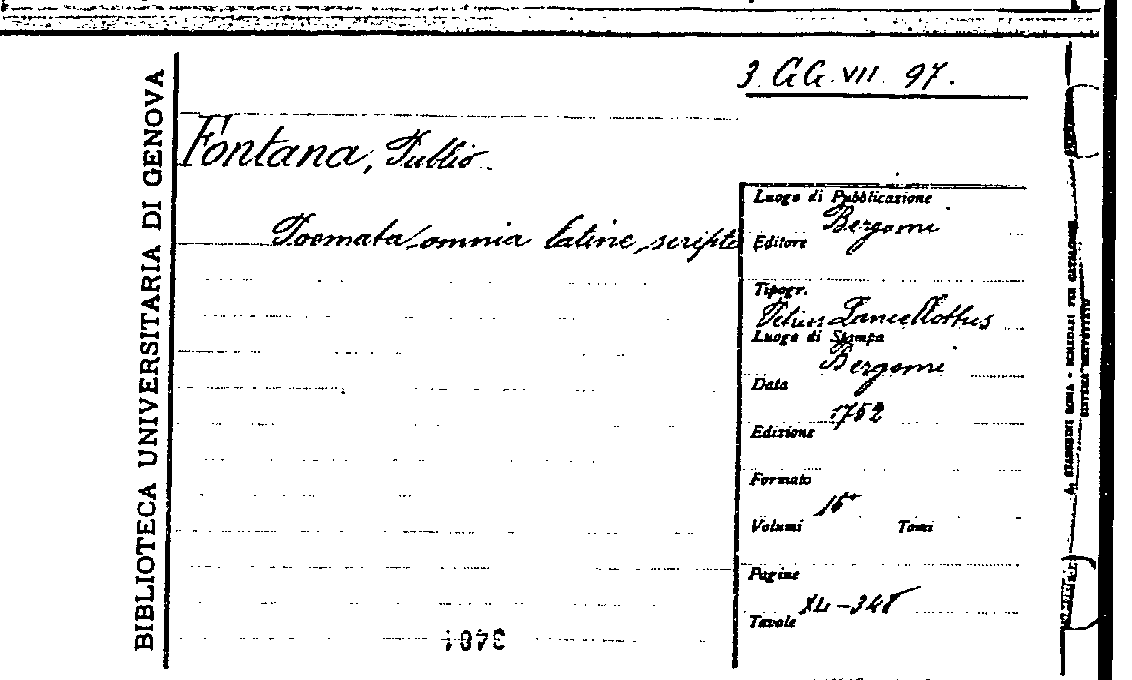 3. GG. VII. 97.
BIBLIOTECA UNIVERSITARIA DI GENOVA
Fontana, Publio.
Poemata omnia latine scripta
Luogo di Pubblicazione
Bergomi
Editore
Tipogr.
Lancellottus
Luogo di Stampa
Bergomi
Data
1752
Edizione
Formato
16°
Volumi Tomi
Pagine
XL-348
Tavole
3401